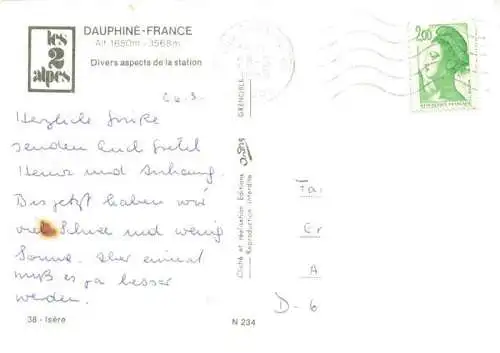 les
2
alpes
DAUPHINÉ-FRANCE
Alt. 1650m - 3568m
Divers aspects de la station
2.00
Herzliche Grüße
senden Euch Gretel
Heinz und Anhang.
Bis jetzt haben wir
viel Schnee und wenig
Sonne. Aber einmal
muß es ja besser
werden.
38 - Isère
N 234
Cliché et réalisation Editions
Reproduction interdite
GRENOBLE
Tai
Er
A
D-6